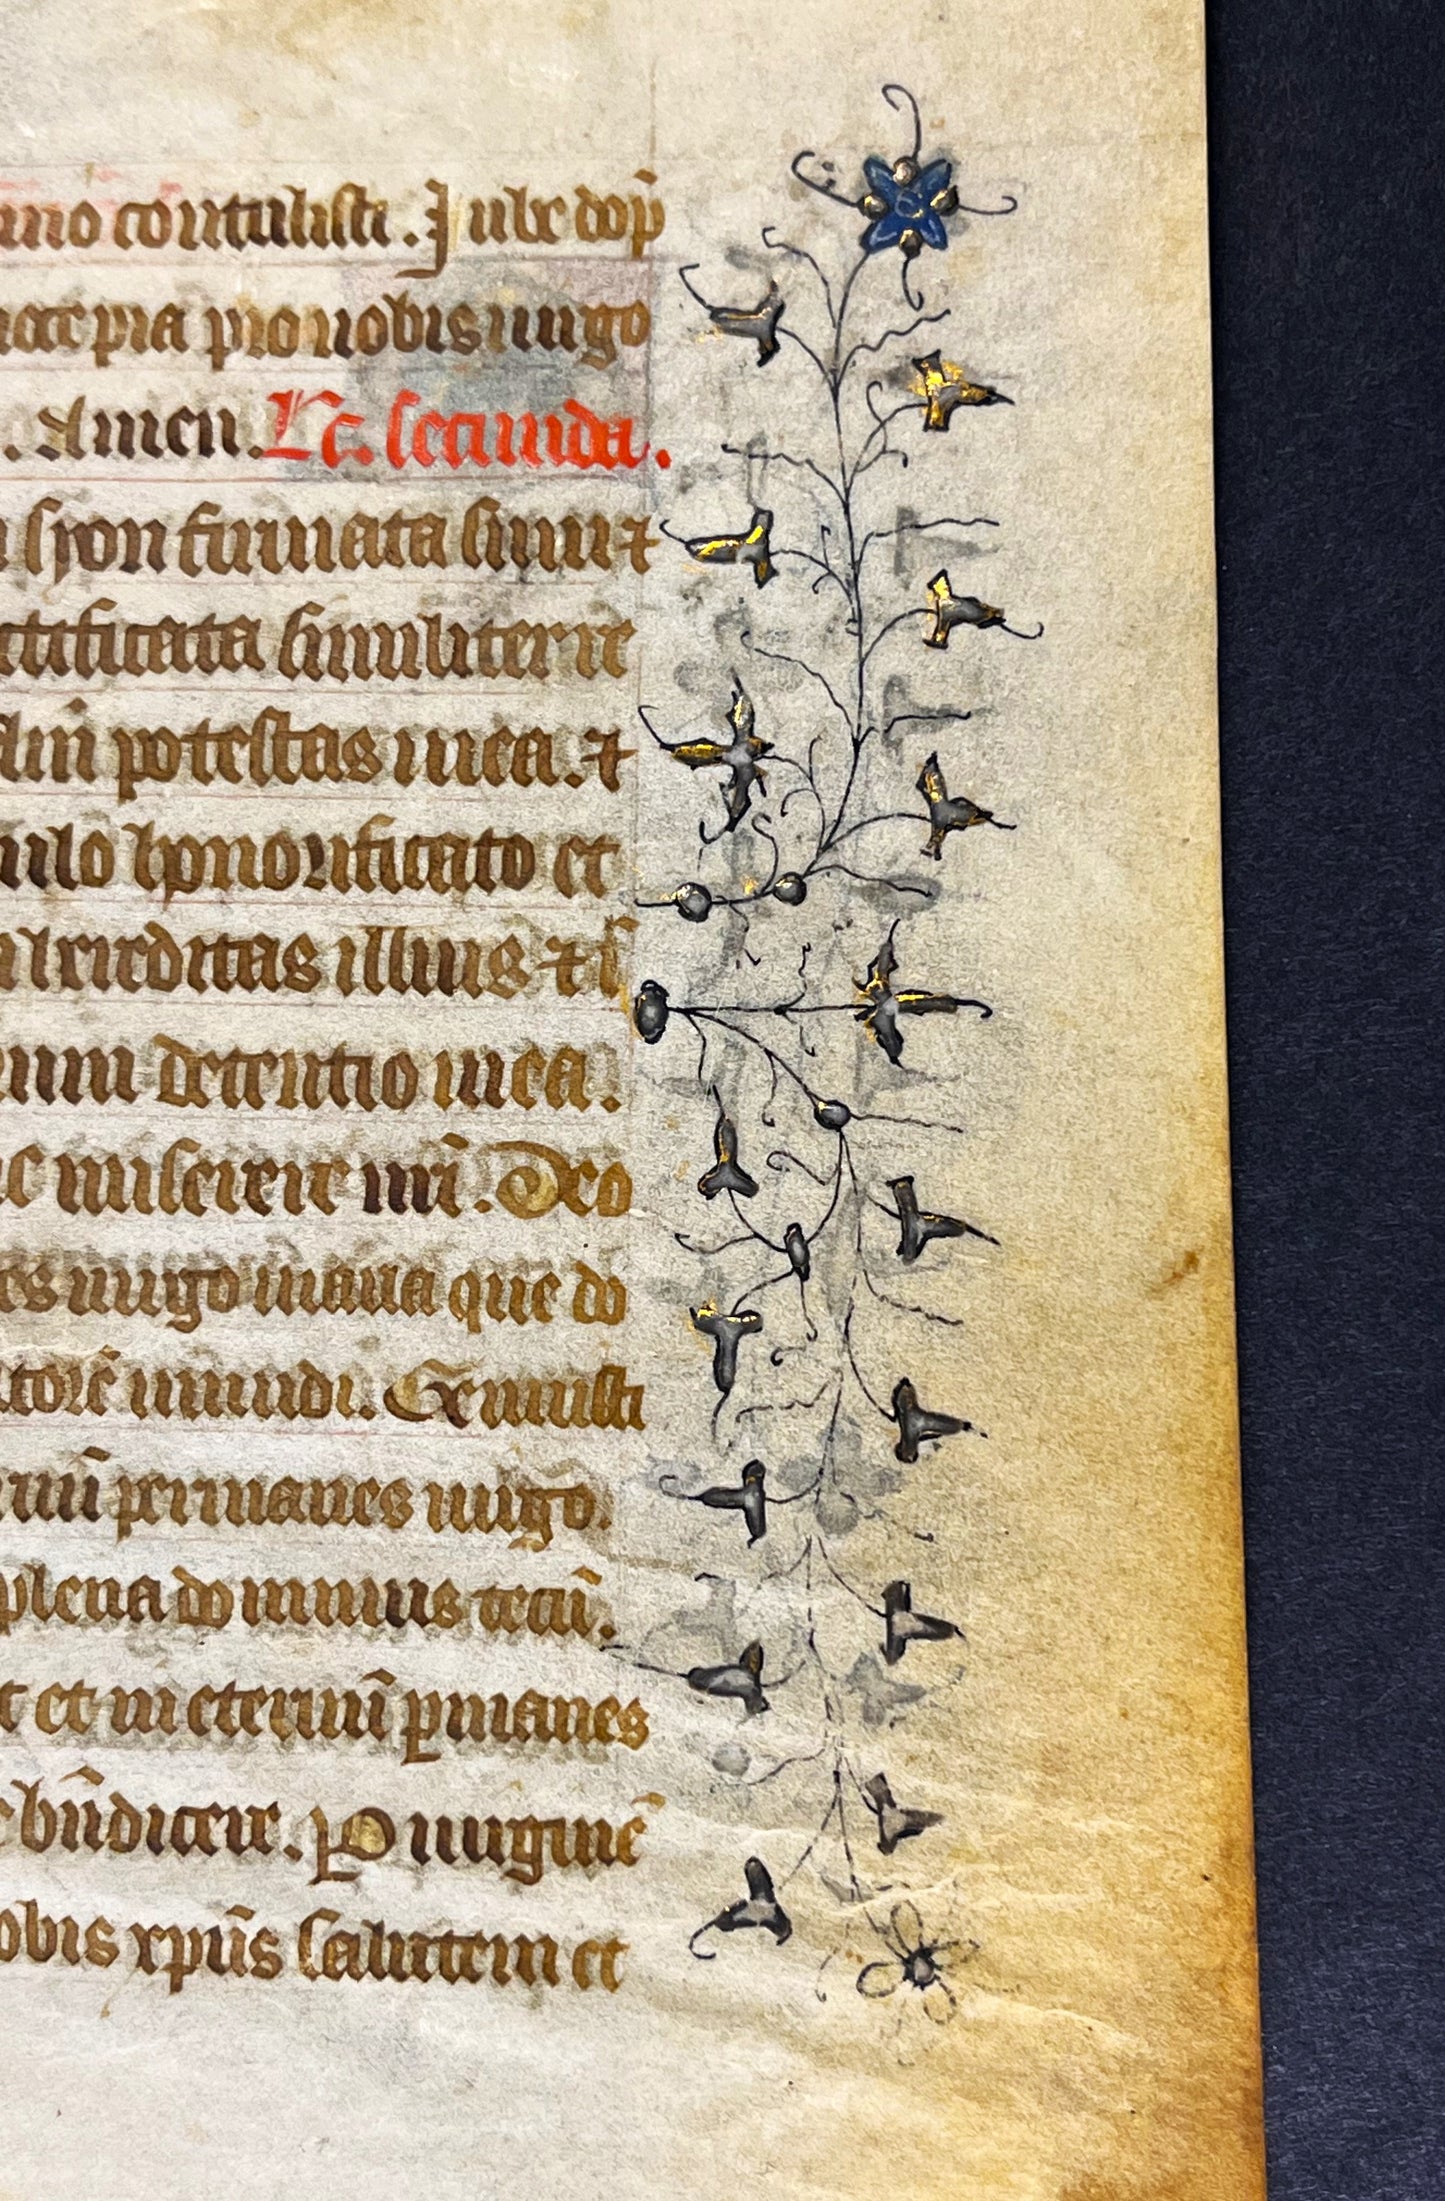 mo contulisti. Jube dop̄
nare pia pro nobis virgo
. Amen. Lc. secunda.
syon firmata sum ⁊
ctificata similiter re
lm̄ potestas mea. ⁊
pulo honorificato et
hereditas illius ⁊ ī
detentio mea.
c miserere nr̄i. Deo
es virgo maria que do
torē mundi. Genuisti
nū permanes virgo.
plena dominus tecū.
t et in eternū pmanes
bn̄dicere. P virginē
obis xpūs salutem et